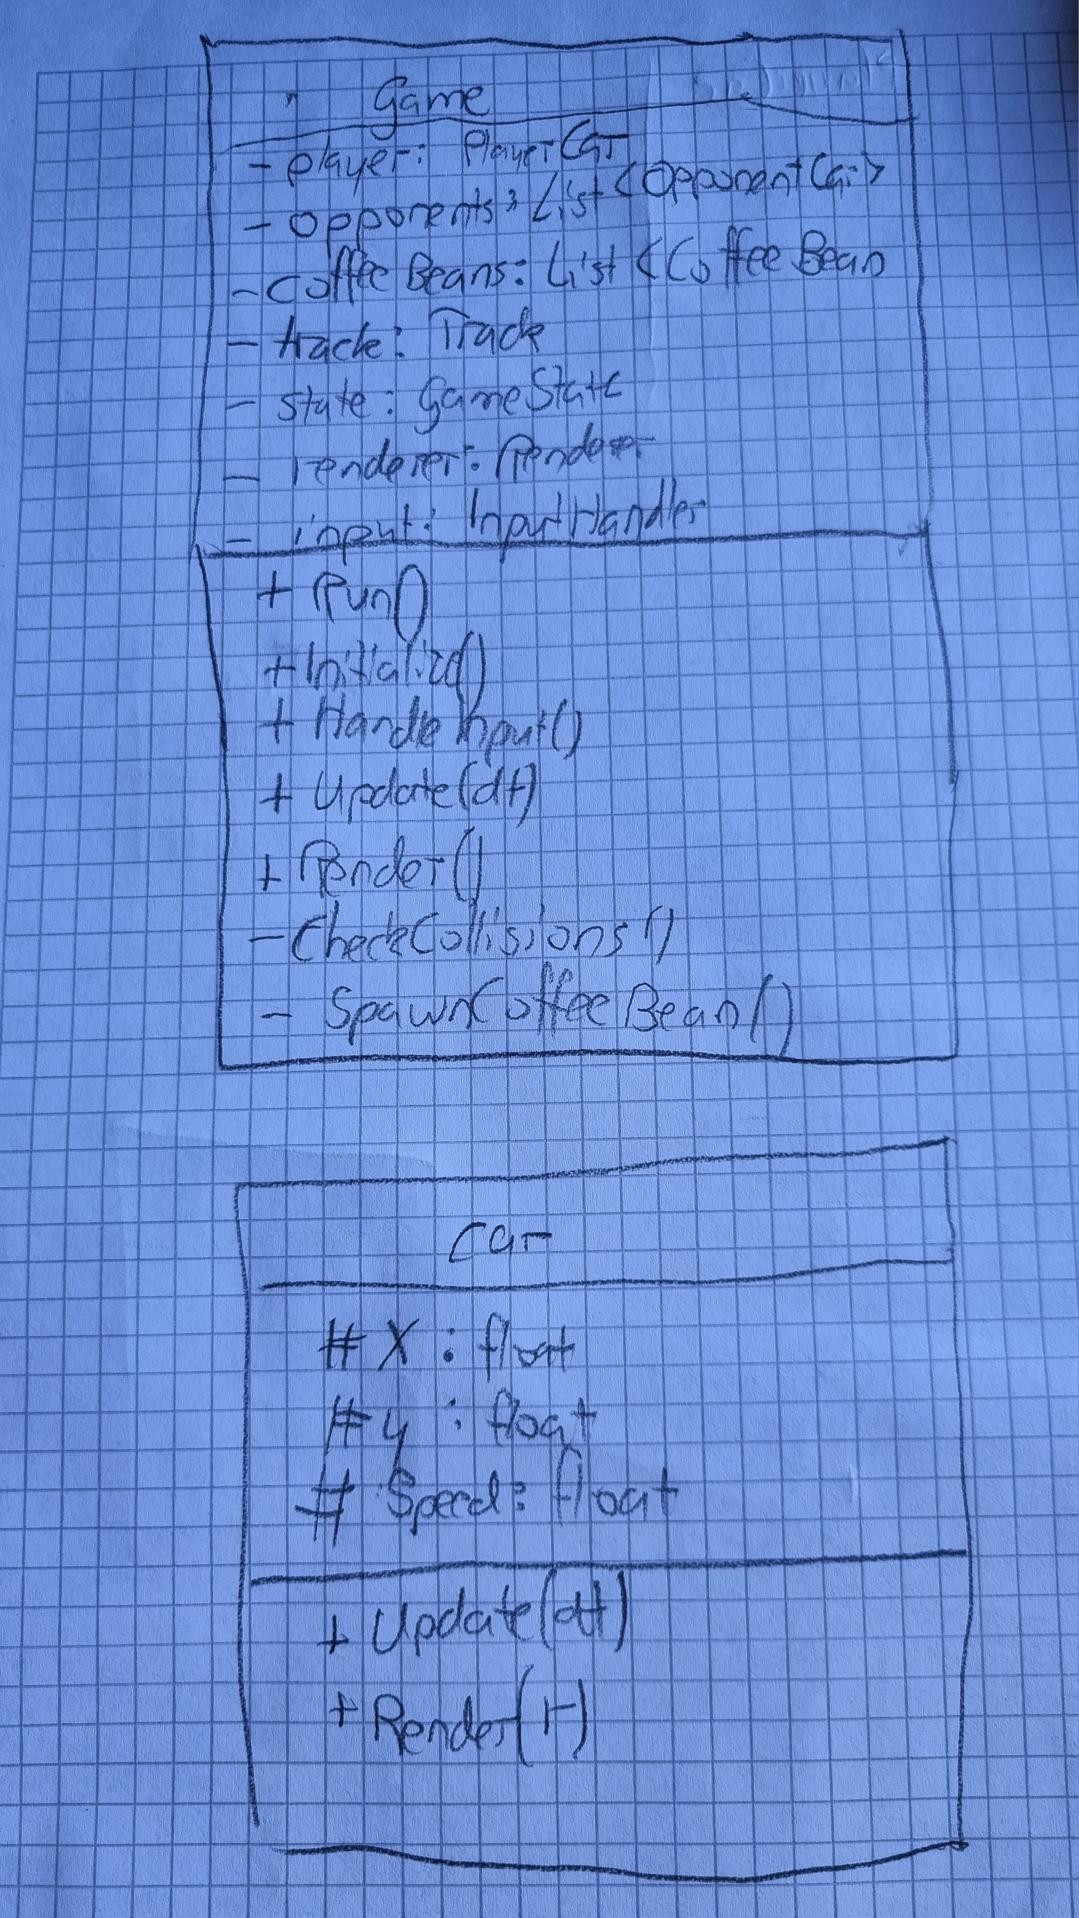 Game
- player: PlayerCar
- opponents: List<OpponentCar>
- CoffeeBeans: List<CoffeeBean
- track: Track
- state: GameState
- renderer: Renderer
- input: InputHandler
+ Run()
+ Initialize()
+ HandleInput()
+ Update(dt)
+ Render()
- CheckCollisions()
- SpawnCoffeeBean()
Car
# X : float
# y : float
# Speed: float
+ Update(dt)
+ Render(r)